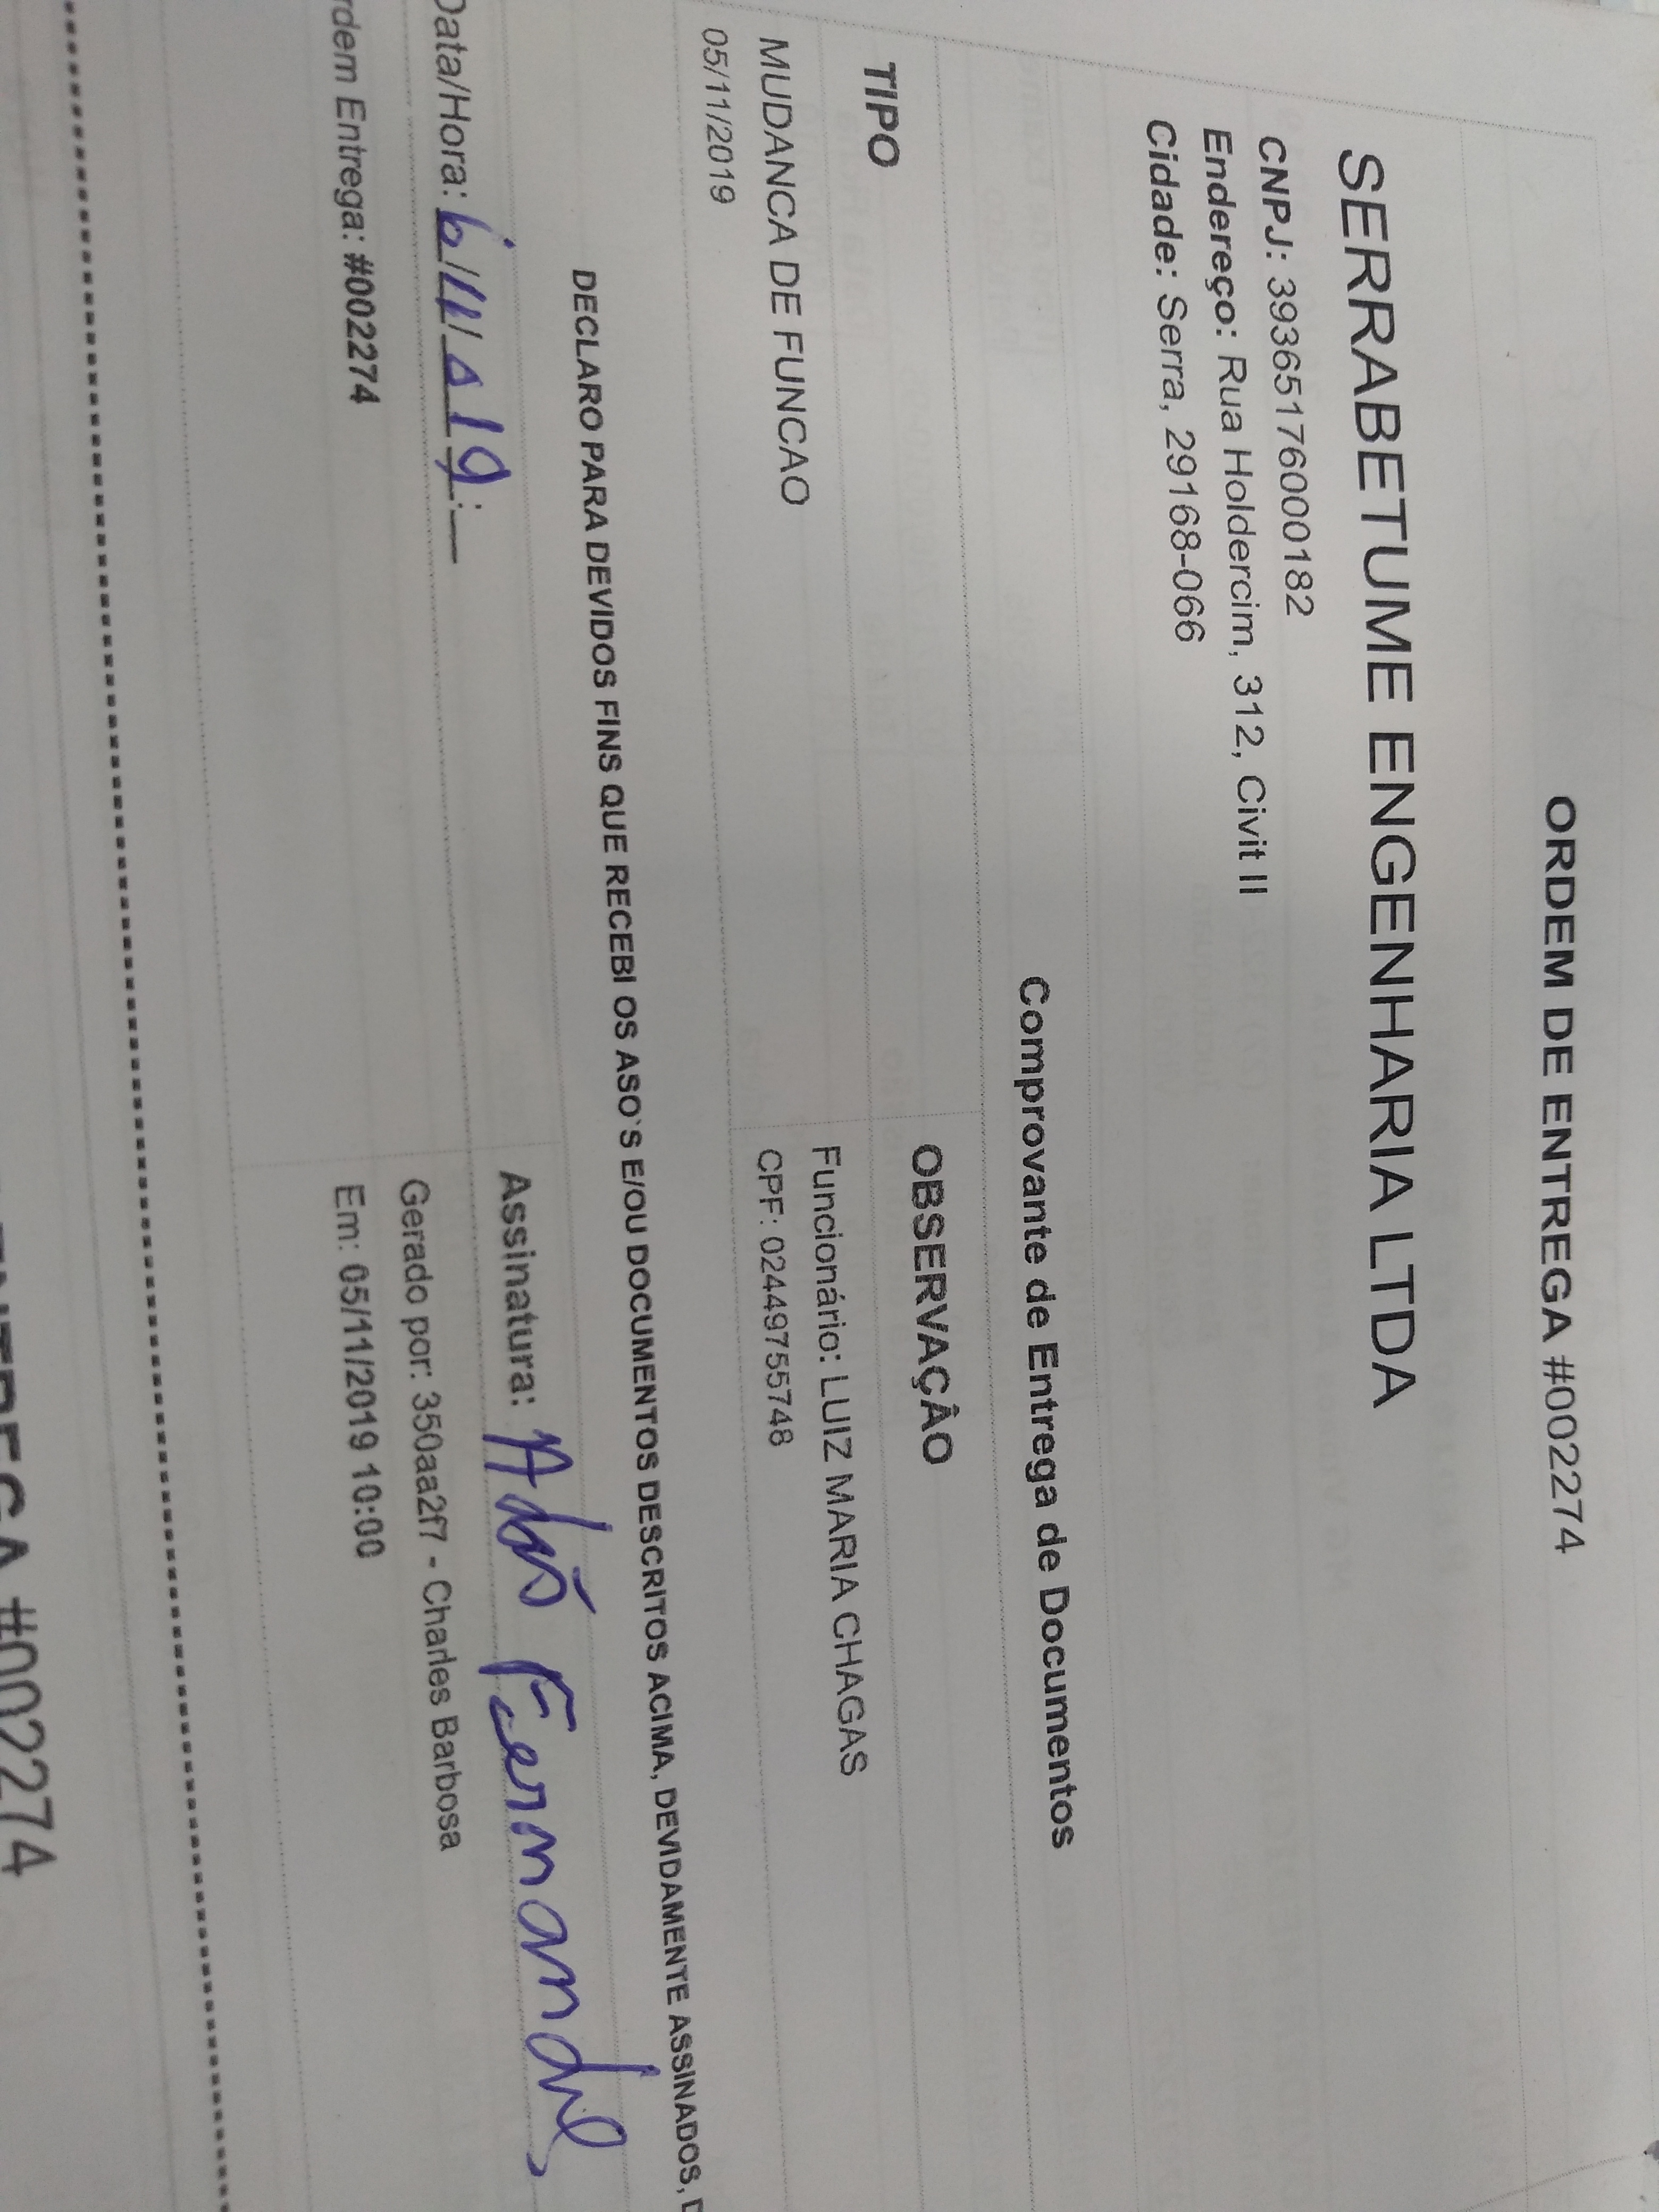 ORDEM DE ENTREGA #002274
SERRABETUME ENGENHARIA LTDA
CNPJ: 39365176000182
Endereço: Rua Holdercim, 312, Civit II
Cidade: Serra, 29168-066
Comprovante de Entrega de Documentos
TIPO OBSERVAÇÃO
MUDANCA DE FUNCAO Funcionário: LUIZ MARIA CHAGAS
05/11/2019 CPF: 02449755748
DECLARO PARA DEVIDOS FINS QUE RECEBI OS ASO`S E/OU DOCUMENTOS DESCRITOS ACIMA, DEVIDAMENTE ASSINADOS, D
Data/Hora: 6/11/ 19 : Assinatura: Adão Fernandes
rdem Entrega: #002274 Gerado por: 350aa2f7 - Charles Barbosa
Em: 05/11/2019 10:00
ENTREGA #002274